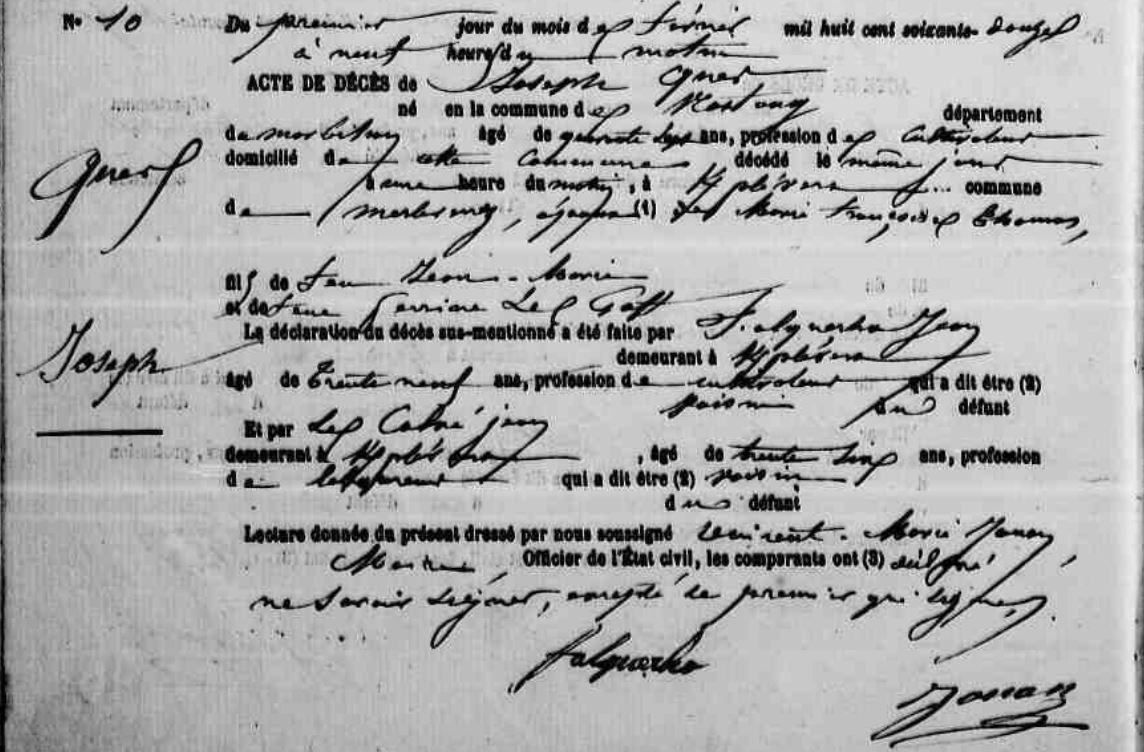 No 10 Du premier jour du mois de février mil huit cent soixante-douze
à neuf heures du matin
ACTE DE DÉCÈS de Joseph
né en la commune de département
du morbihan âgé de quarante ans, profession de cultivateur
domicilié de cette Commune, décédé le même jour
à une heure du matin, à commune
de époux (1) de Marie Françoise Thomas,
fils de feu Jean-Marie
et de feue Perrine Le Goff
La déclaration du décès sus-mentionné a été faite par Falquerho Jean
demeurant à
âgé de trente neuf ans, profession de cultivateur qui a dit être (2)
voisin du défunt
Et par Le Calvé jean
demeurant à , âgé de trente ans, profession
de laboureur qui a dit être (2) voisin
du défunt
Lecture donnée du présent dressé par nous soussigné Vincent-Marie
Maire, Officier de l'État civil, les comparants ont (3) déclaré
ne savoir signer, excepté le premier qui signe,
falquerho
Joseph